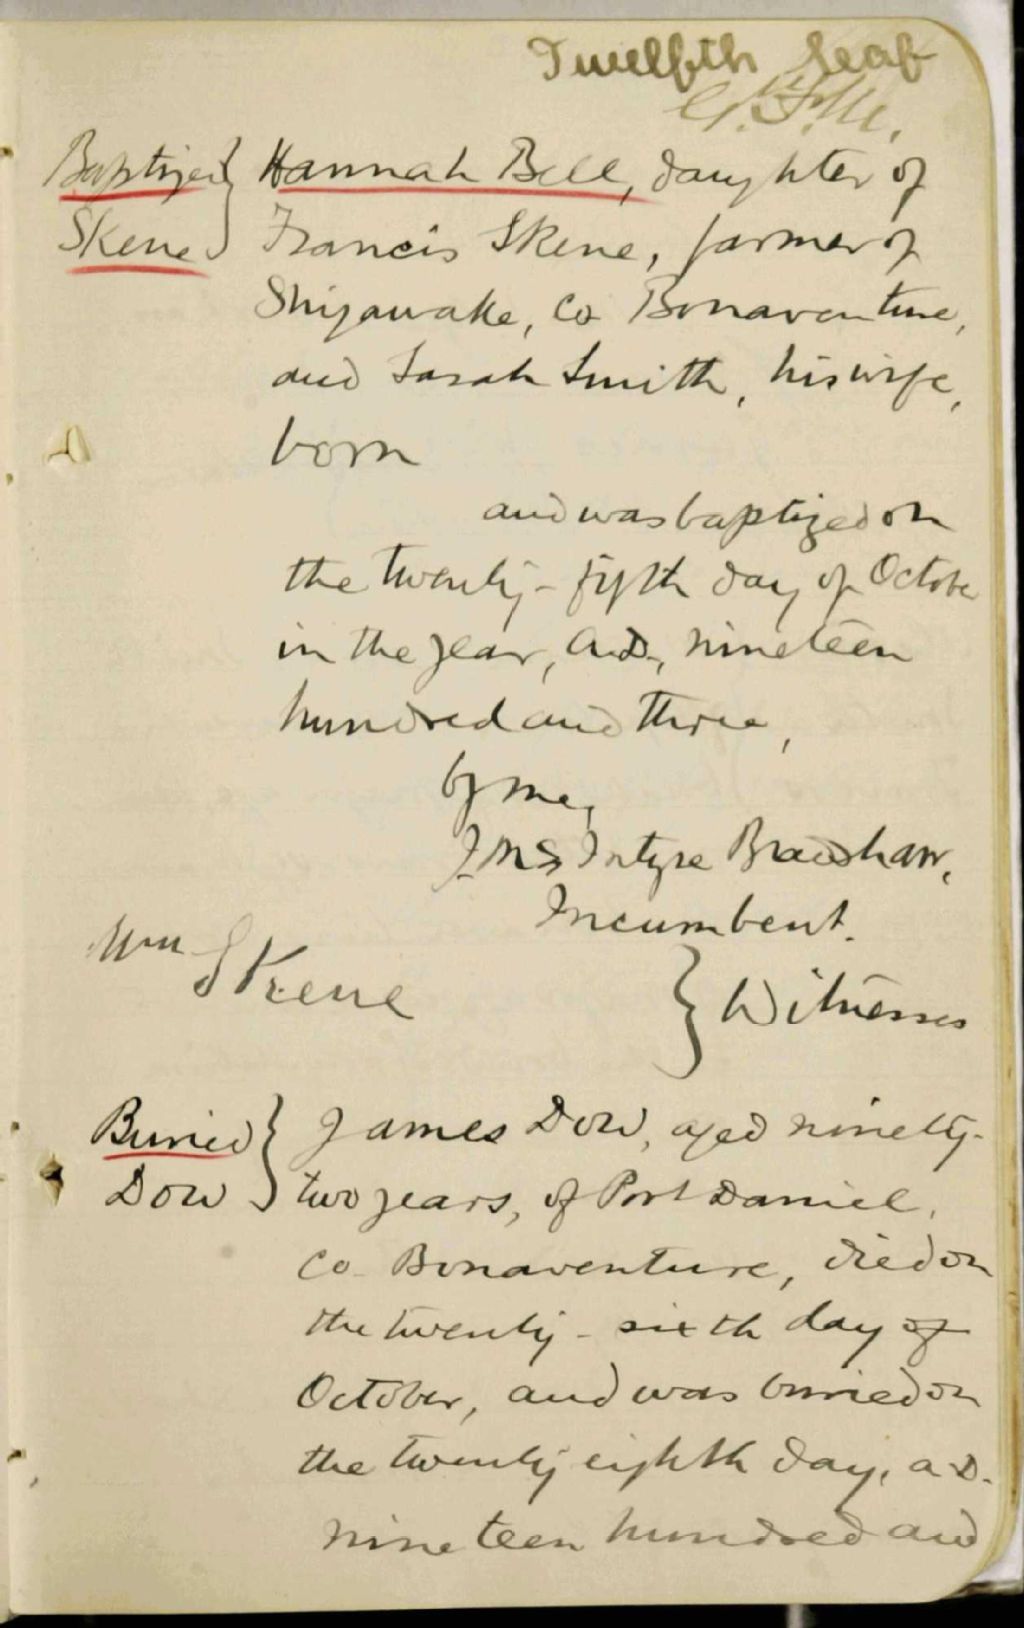 Twelfth Leaf
Baptized Hannah Bell, daughter of
Skene Francis Skene, farmer of
Shigawake, Co Bonaventure,
and Sarah Smith, his wife,
born
and was baptized on
the twenty-fifth day of October
in the year, A.D., nineteen
hundred and three,
by me,
Intyre Bradshaw,
Incumbent.
Wm Skene
Witnesses
Buried James Dow, aged ninety-
Dow two years, of Port Daniel,
Co Bonaventure, died on
the twenty-sixth day of
October, and was buried on
the twenty eighth day, a.D.
nineteen hundred and